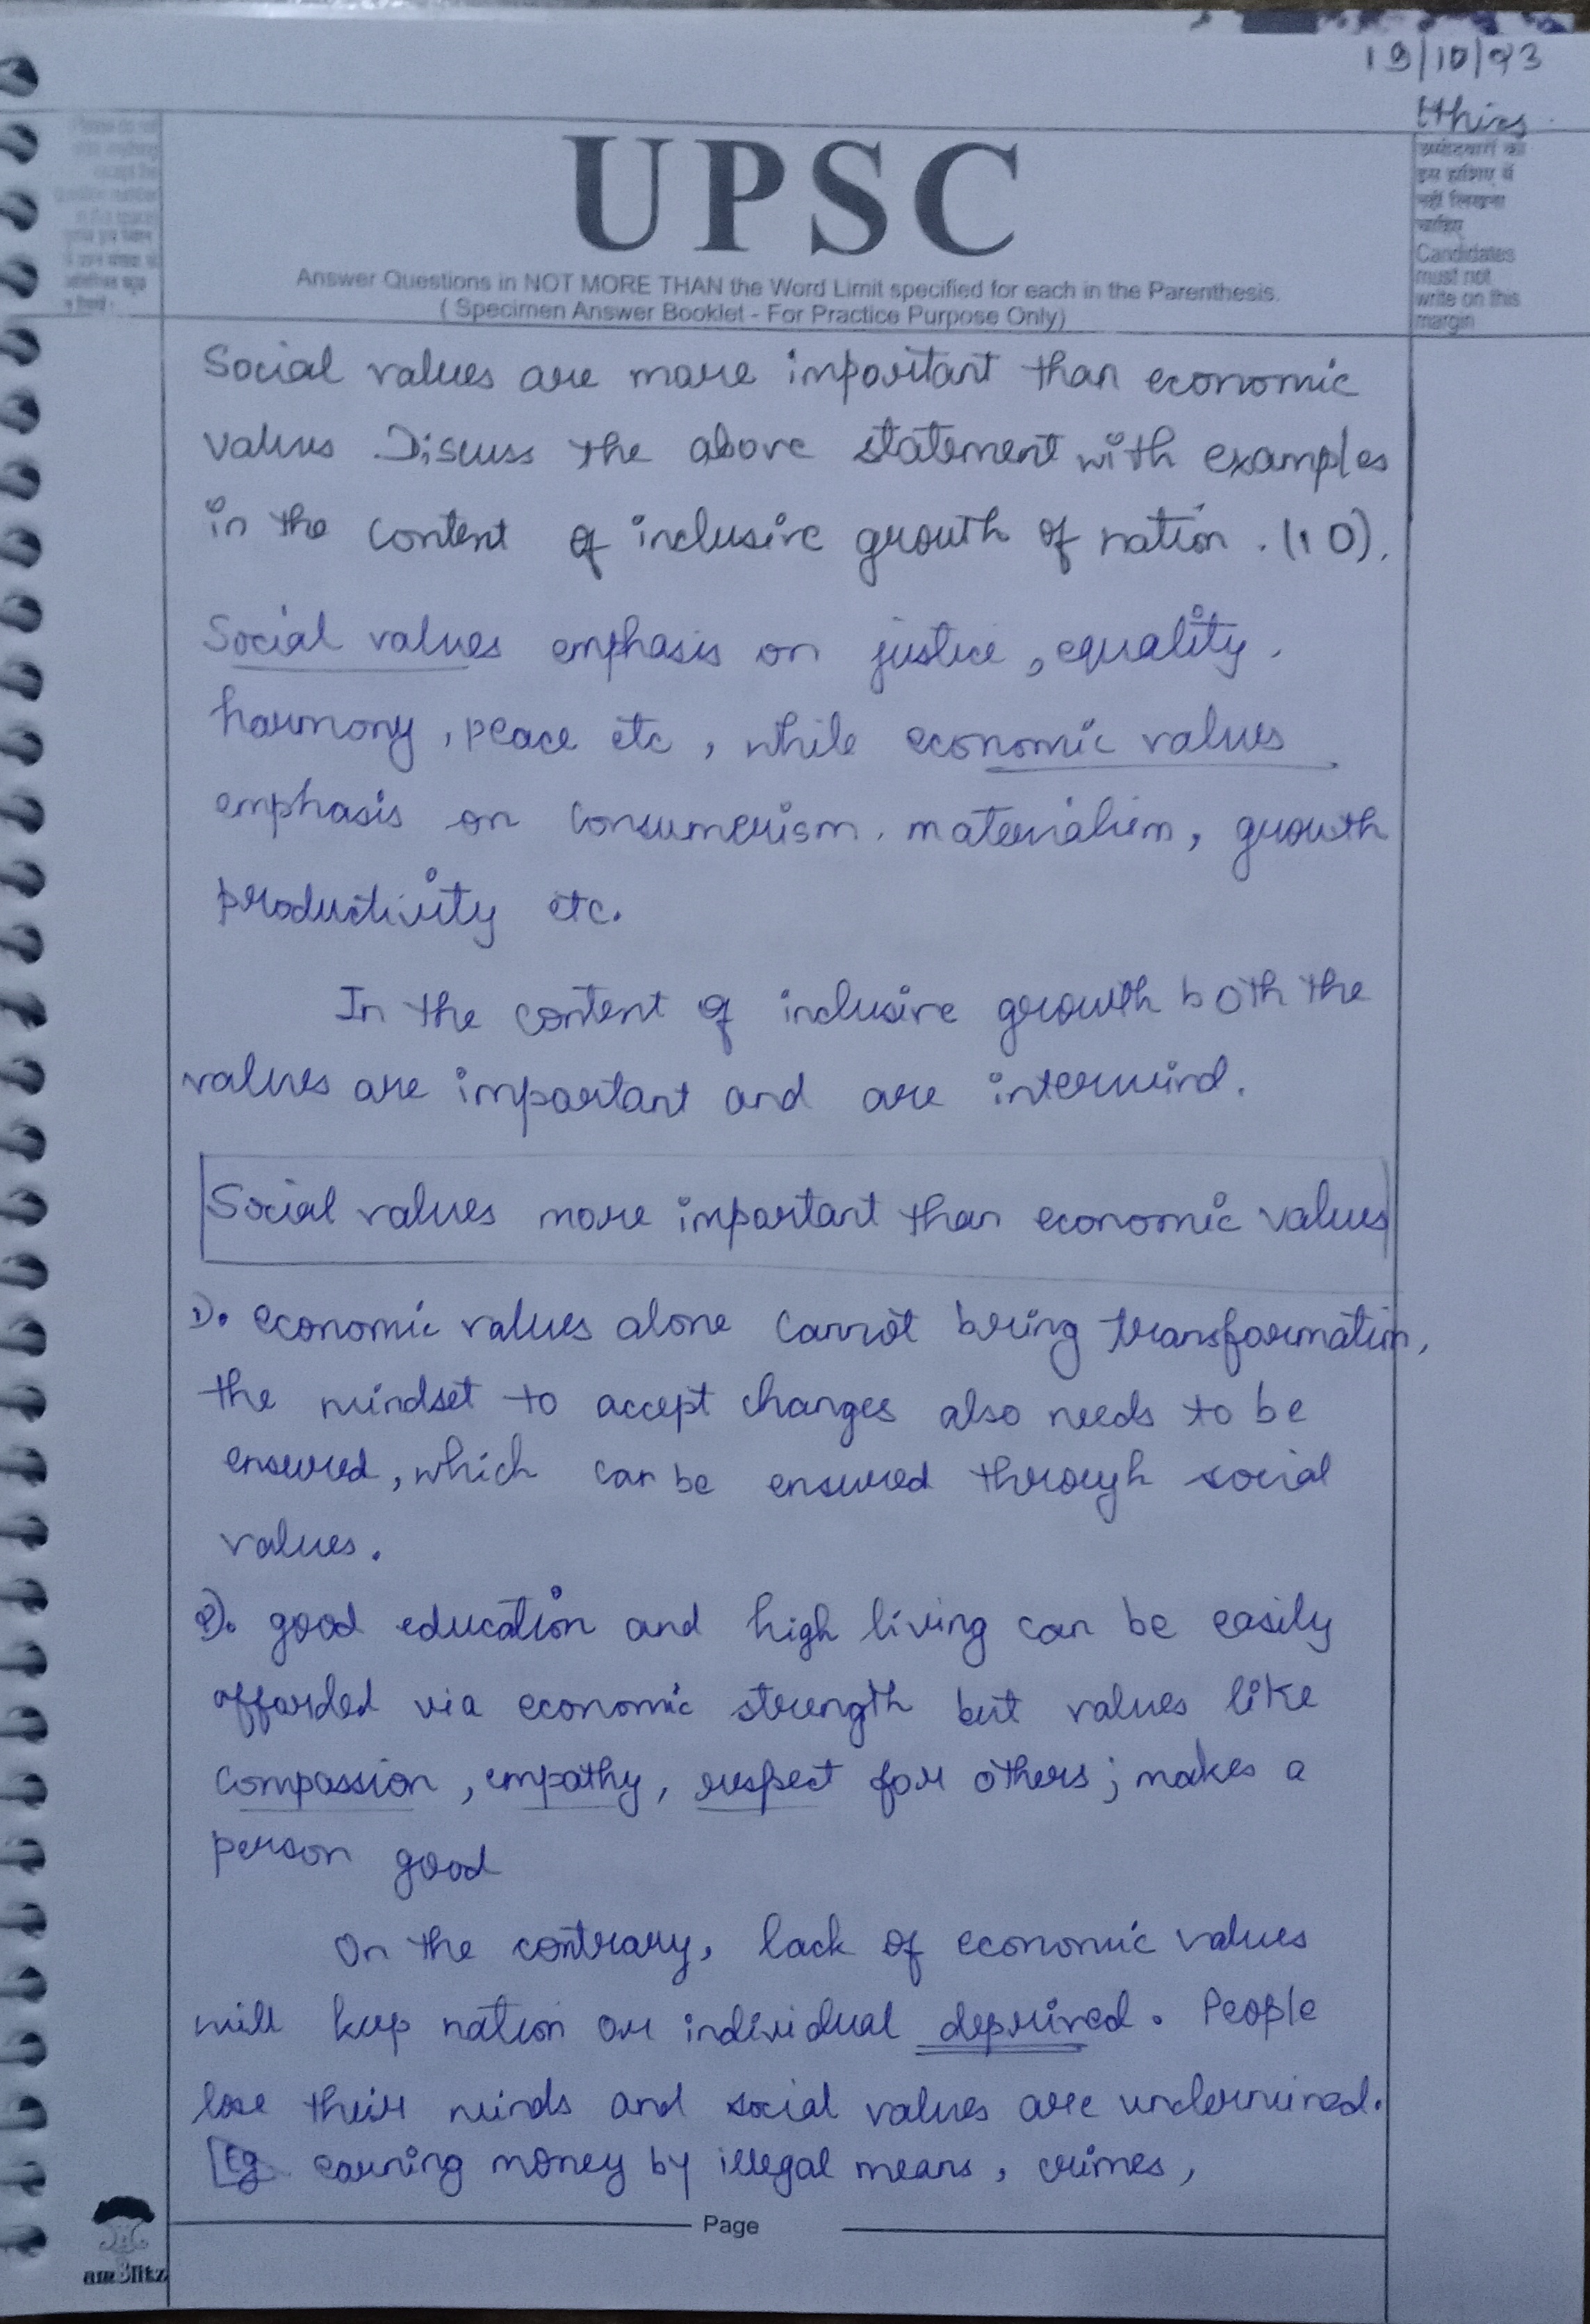 19/10/23
Ethics
उम्मीदवारों को
इस हाशिए में
नहीं लिखना
चाहिए
Candidates
must not
write on this
margin
UPSC
Answer Questions in NOT MORE THAN the Word Limit specified for each in the Parenthesis.
( Specimen Answer Booklet - For Practice Purpose Only)
Social values are more important than economic
values. Discuss the above statement with examples
in the content of inclusive growth of nation. (10).
Social values emphasis on justice, equality,
harmony, peace etc, while economic values
emphasis on consumerism, materialism, growth
productivity etc.
In the content of inclusive growth both the
values are important and are
Social values more important than economic values
1). economic values alone cannot bring transformation,
the mindset to accept changes also needs to be
ensured, which can be ensured through social
values.
2). good education and high living can be easily
afforded via economic strength but values like
compassion, empathy, respect for others; makes a
person good
On the contrary, lack of economic values
will keep nation or individual deprived. People
lose their minds and social values are undermined.
Eg earning money by illegal means, crimes,
Page
amBlitz